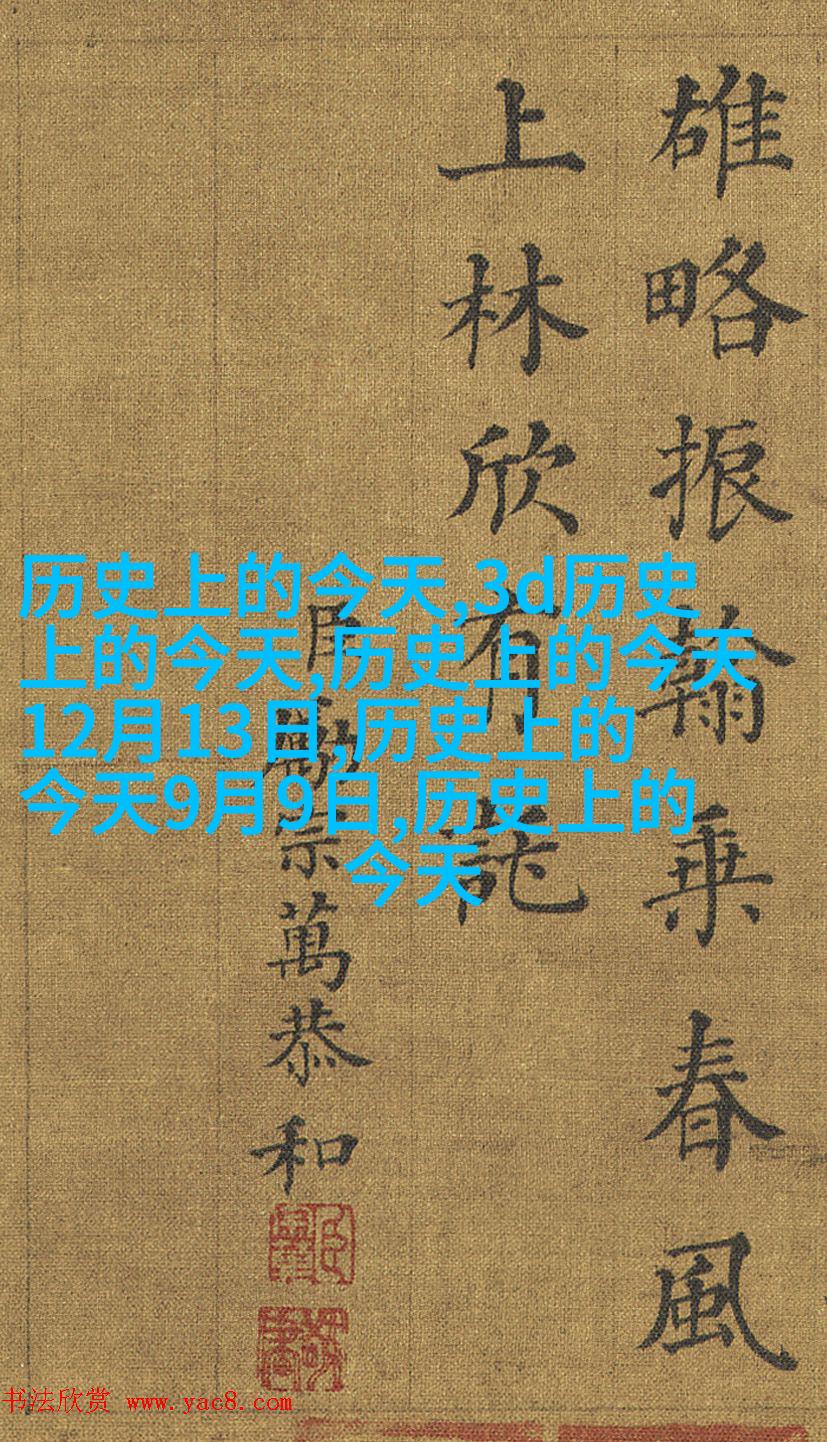 雄略振翰乗春風
上林欣有託
臣勵宗萬恭和
历史上的今天,3d历史
上的今天,历史上的今天
12月13日,历史上的
今天9月9日,历史上的
今天
书法欣赏 www.yac8.com